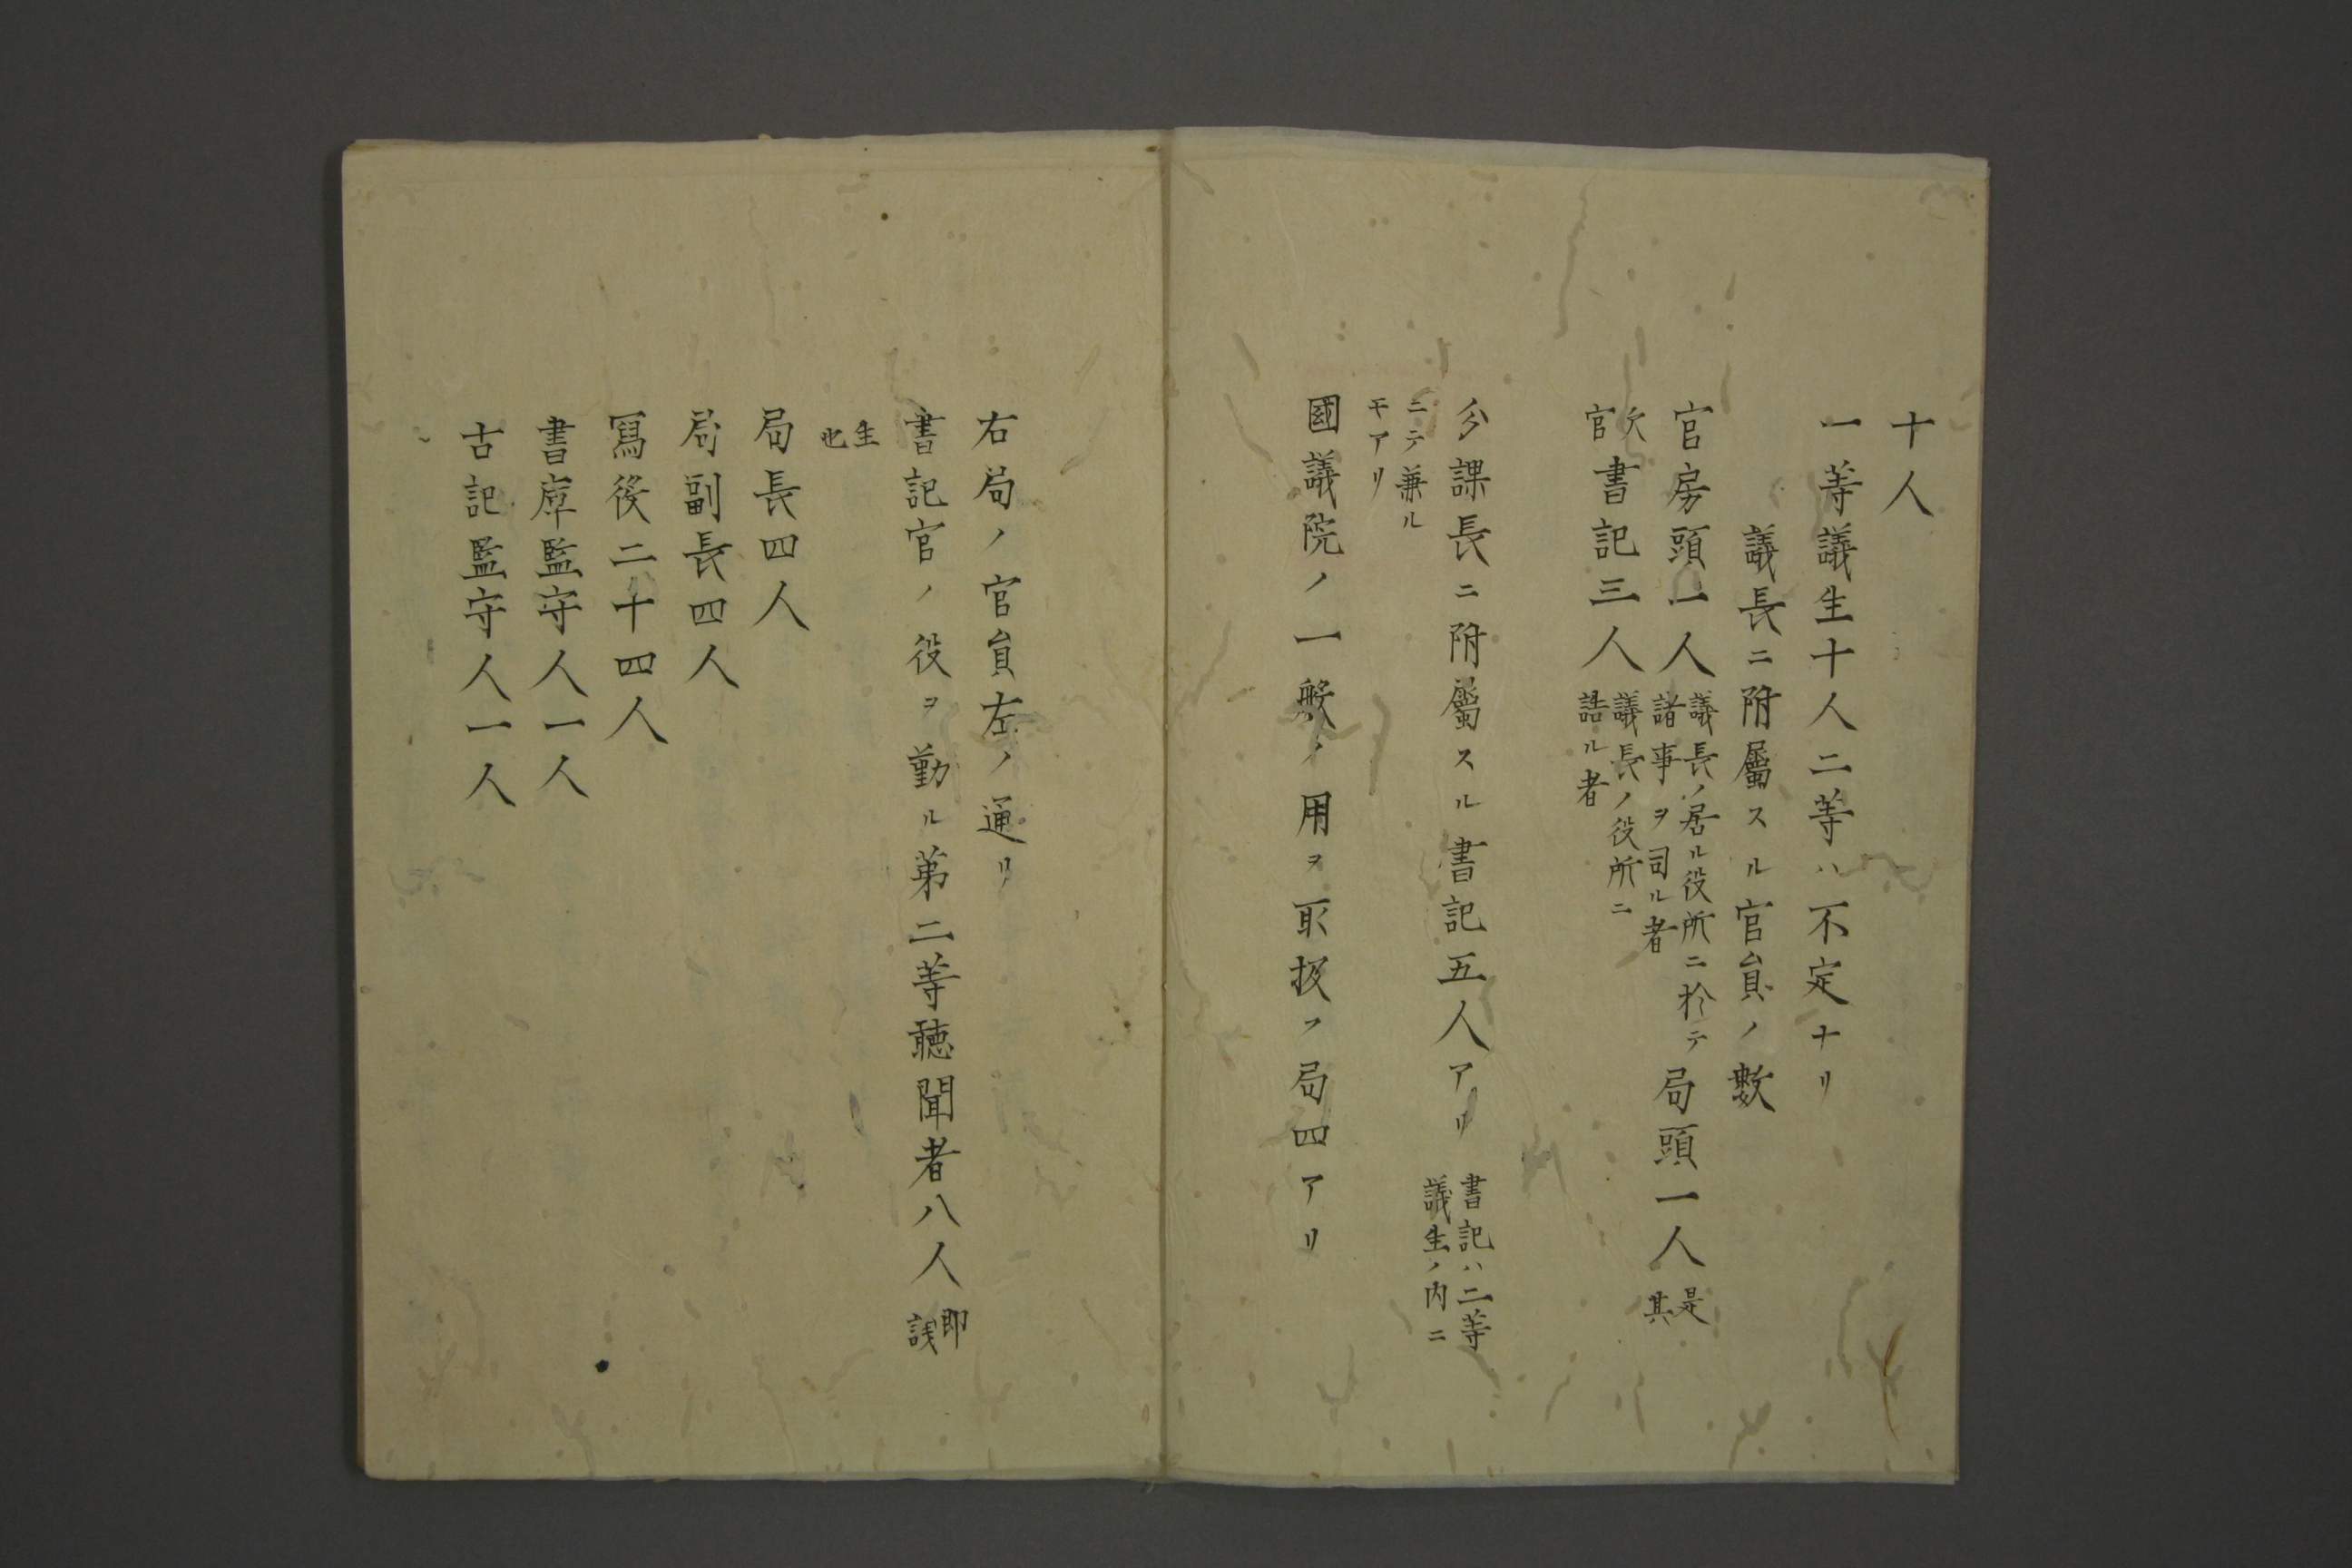 十人
一等議生十人二等ハ不定ナリ
議長ニ附屬スル官員ノ數
官房頭一人議長ノ居ル役所ニ於テ諸事ヲ司ル者局頭一人是其
欠官書記三人議長ノ役所ニ詰ル者
分課長ニ附屬スル書記五人アリ書記ハ二等議生ノ内ニ
ニテ兼ルモアリ
國議院ノ一般ノ用ヲ取扱フ局四アリ
右局ノ官員左ノ通リ
書記官ノ役ヲ勤ル第二等聴聞者八人即議
生也
局長四人
局副長四人
寫役二十四人
書庫監守人一人
古記監守人一人